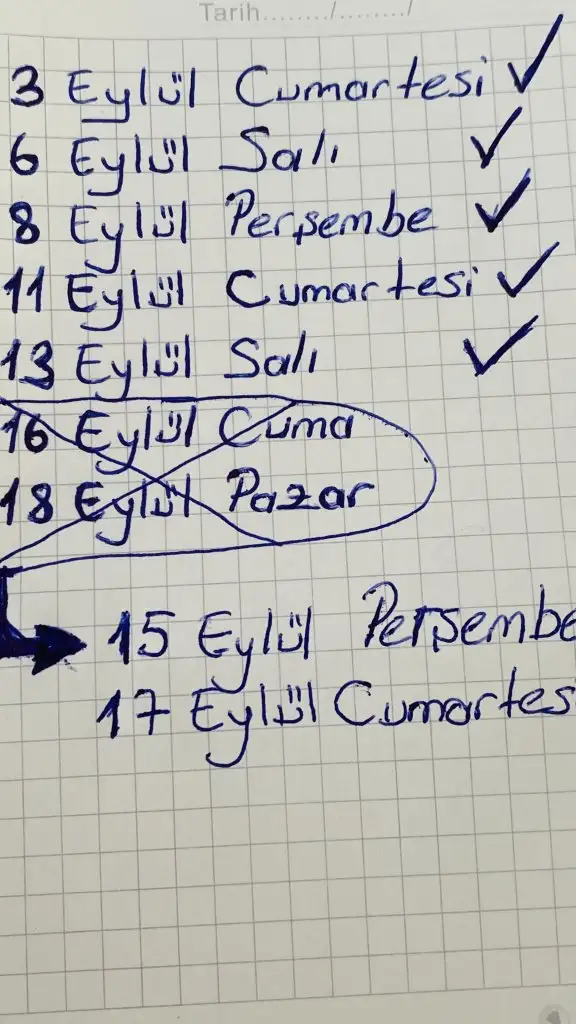 Tarih......../......../
3 Eylül Cumartesi ✓
6 Eylül Salı ✓
8 Eylül Perşembe ✓
11 Eylül Cumartesi ✓
13 Eylül Salı ✓
16 Eylül Cuma
18 Eylül Pazar
15 Eylül Perşembe
17 Eylül Cumartes